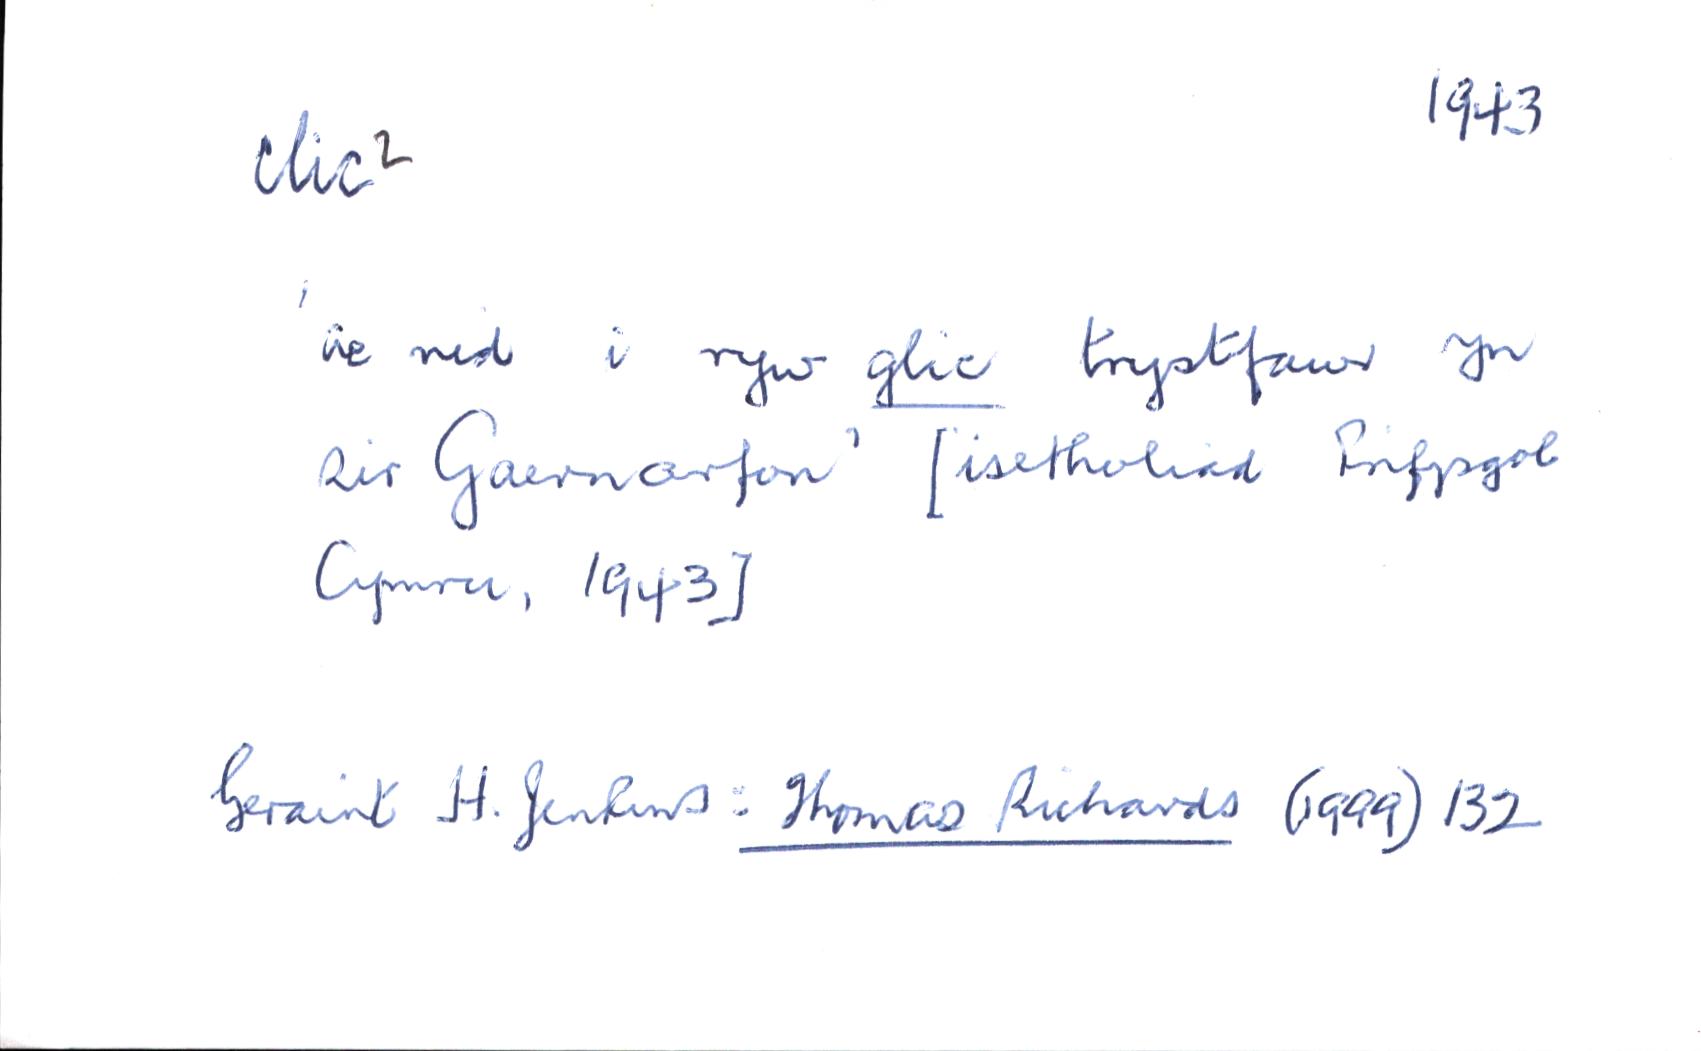 1943
clic²
'ac nid i ryw glic trystfawr yn
Sir Gaernarfon' [isetholiad Prifysgol
Cymru, 1943]
Geraint H. Jenkins: Thomas Richards (1999) 132